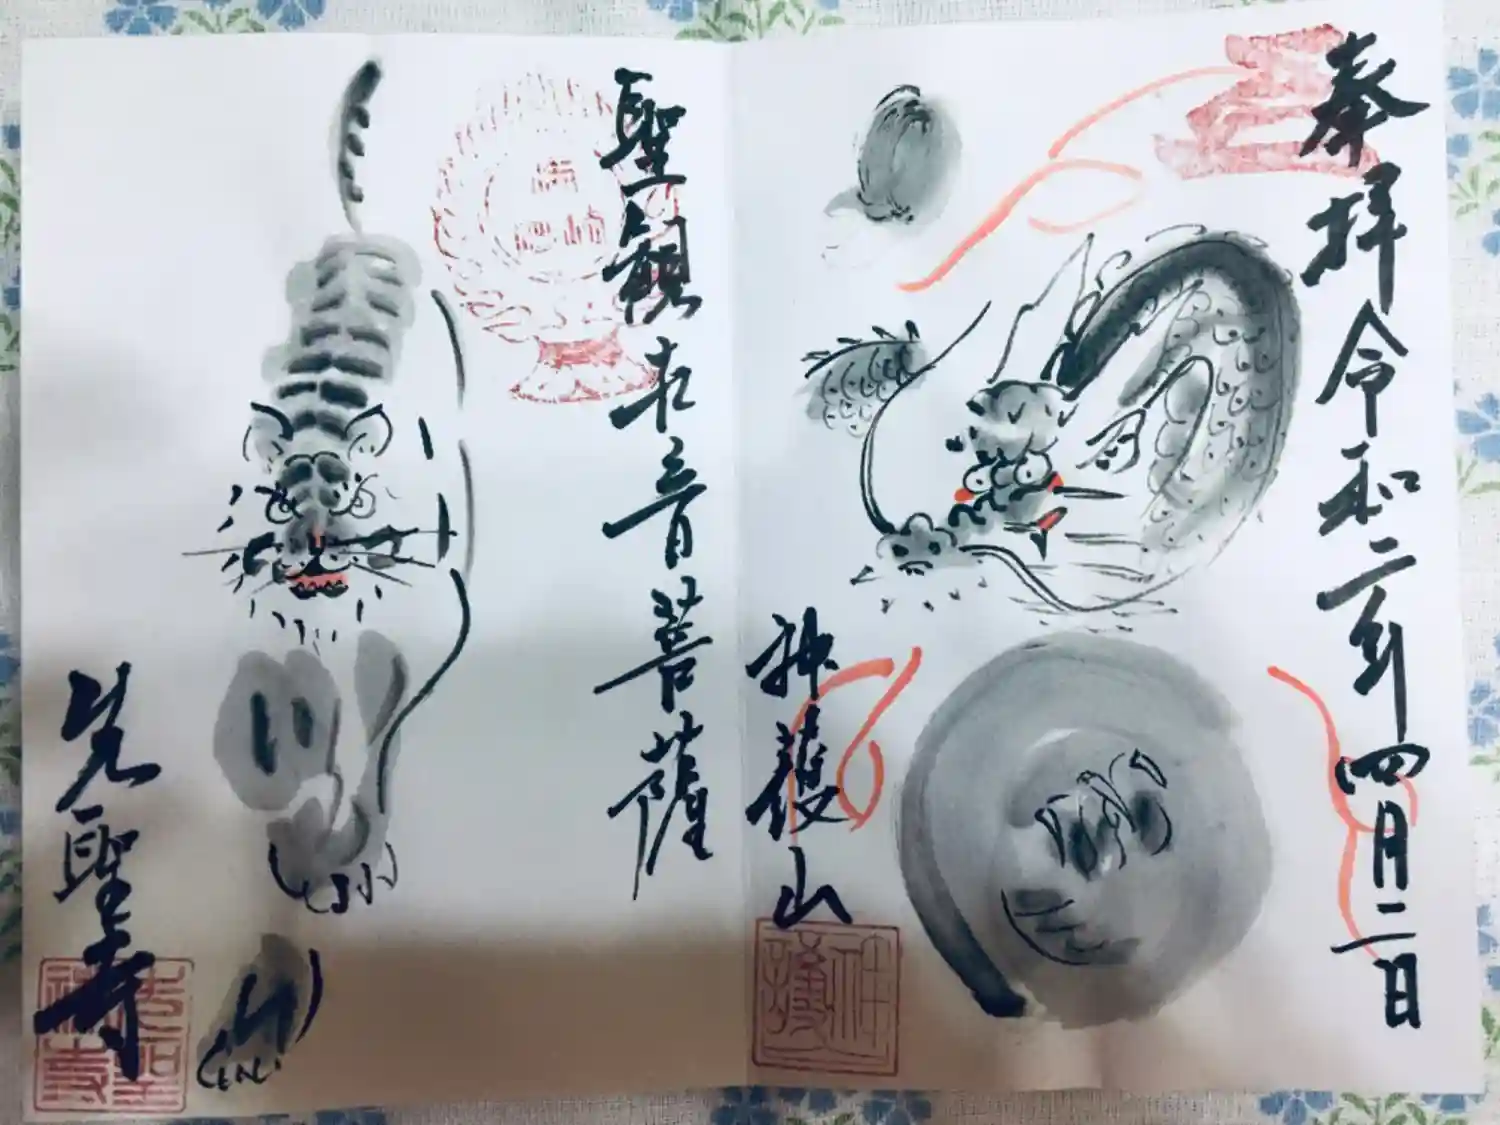 奉拝 令和二年四月二日
神護山
聖観世音菩薩
光聖寺